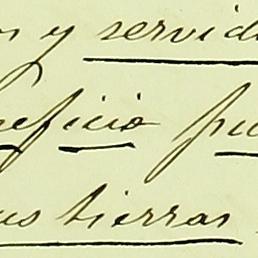 y servid
eficio pu
us tierras